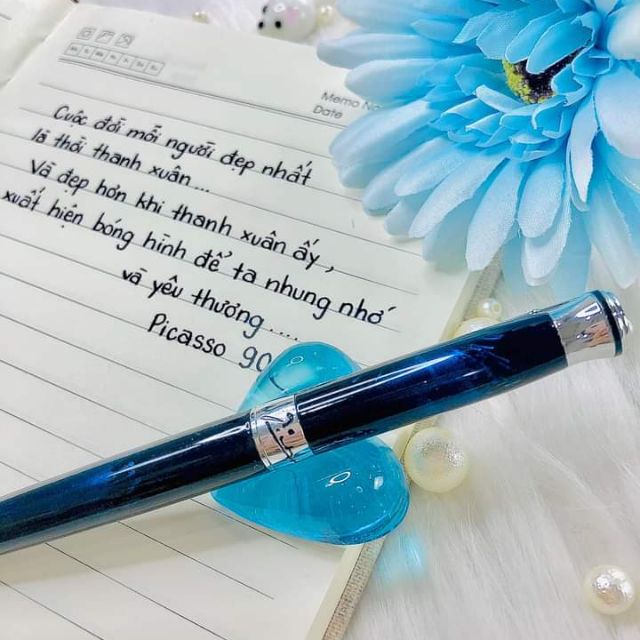 Memo No
Date
Cuộc đời mỗi người đẹp nhất
là thời thanh xuân...
Và đẹp hơn khi thanh xuân ấy,
xuất hiện bóng hình để ta nhung nhớ
và yêu thương....
Picasso 90